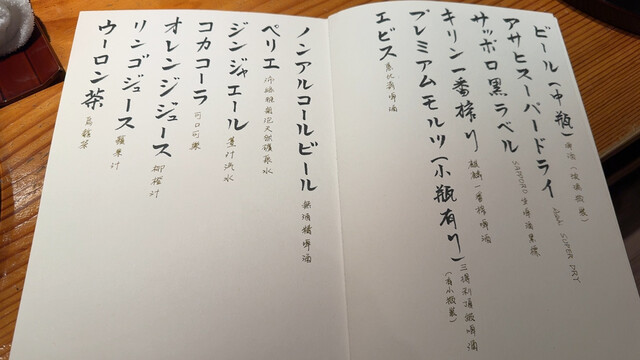 ビール(中瓶) 啤酒(玻璃瓶裝)
アサヒスーパードライ Asahi SUPER DRY
サッポロ黒ラベル SAPPORO 生啤酒黑標
キリン一番搾り 麒麟一番搾啤酒
プレミアムモルツ(小瓶有り) 三得利頂級啤酒(有小瓶裝)
エビス 惠比壽啤酒
ノンアルコールビール 無酒精啤酒
ペリエ 沛綠雅氣泡天然礦泉水
ジンジャエール 薑汁汽水
コカコーラ 可口可樂
オレンジジュース 柳橙汁
リンゴジュース 蘋果汁
ウーロン茶 烏龍茶